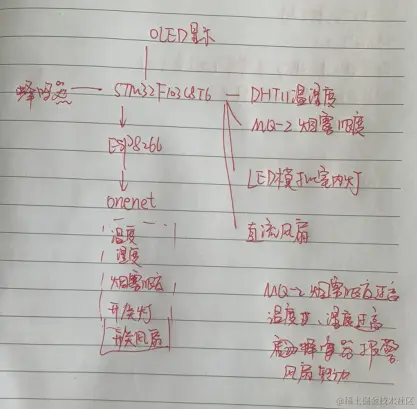 OLED显示
蜂鸣器
STM32F103C8T6
DHT11温湿度
MQ-2烟雾浓度
ESP8266
LED模拟室内灯
onenet
直流风扇
温度
湿度
烟雾浓度
开关灯
开关风扇
MQ-2烟雾浓度过高
温度过高、湿度过高
蜂鸣器报警
风扇转动
@稀土掘金技术社区